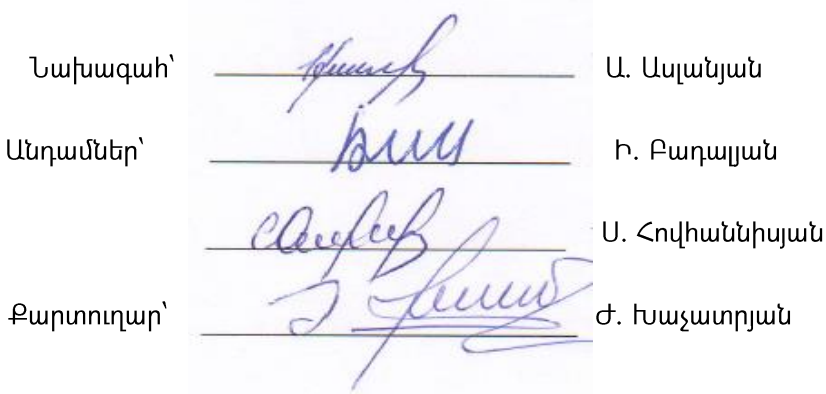 Նախագահ՝ Ա. Ասլանյան
Անդամներ՝ Ի. Բադալյան
Ս. Հովհաննիսյան
Քարտուղար՝ Ժ. Խաչատրյան